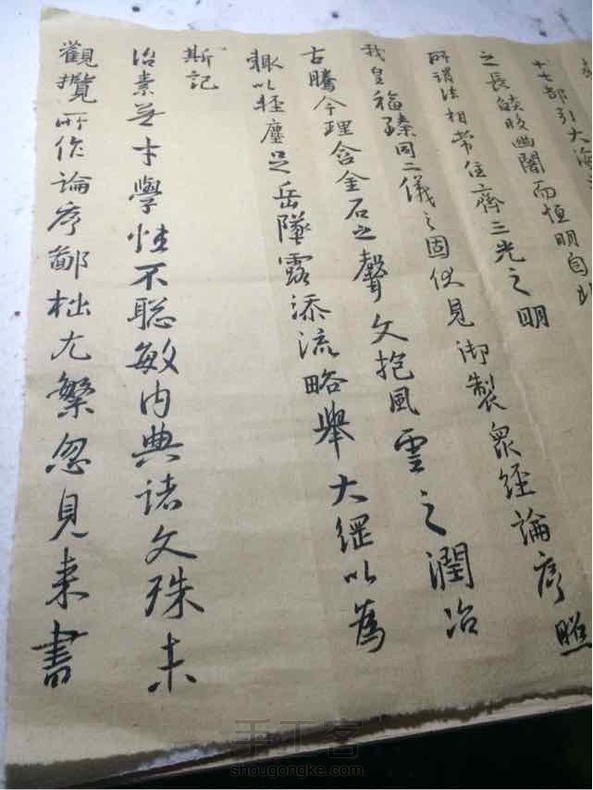 十七部引大海
之長燄皎幽闇而恒明自非
所謂法相常住齊三光之明
我皇福臻同二儀之固伏見御製衆經論序照
古騰今理含金石之聲文抱風雲之潤治
輙以輕塵足岳墜露添流略舉大綱以為
斯記
治素無才學性不聰敏內典諸文殊未
觀攬所作論序鄙拙尤繁忽見来書
手工客
shougongke.com